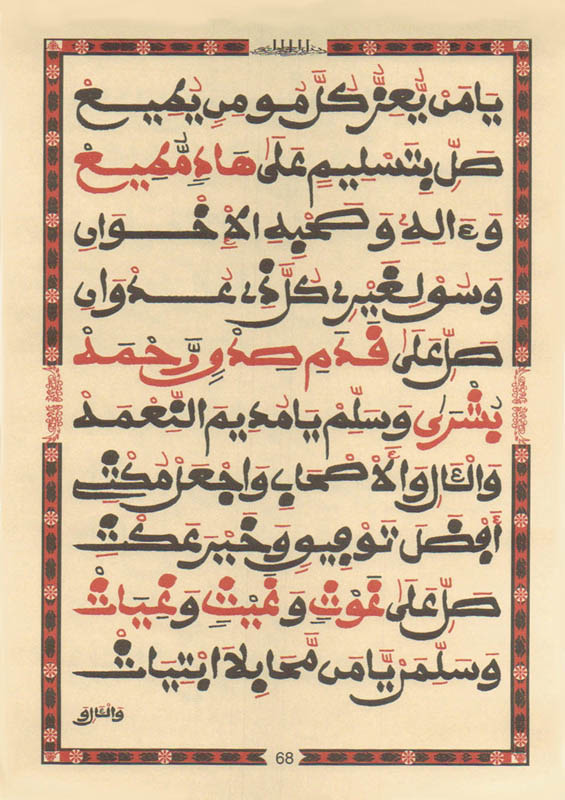 يَا مَن يُّعِزُّ كُلَّ مُومِنٍ يُطِيعْ
صَلِّ بِتَسْلِيمٍ عَلَى هَادٍ مُّطِيعْ
وَءَالِهِ وَصَحْبِهِ الْإِخْوَانِ
وَسُقْ لِغَيْرِي كُلَّ ذِي عُدْوَانِ
صَلِّ عَلَى قَدَمِ صِدْقٍ رَّحْمَهْ
بُشْرَى وَسَلِّمْ يَا مُدِيمَ النِّعْمَهْ
وَالْآلِ وَالْأَصْحَابِ وَاجْعَلْ مُكْثِي
أَفْضَلَ تَوْفِيقٍ وَخَيْرَ مُكْثِ
صَلِّ عَلَى غَوْثٍ وَغَيْثٍ وَغِيَاثْ
وَسَلِّمَنْ يَّا مَن مَّحَا بِلَا ابْتِيَاثْ
وَالْآلِ وَ
68